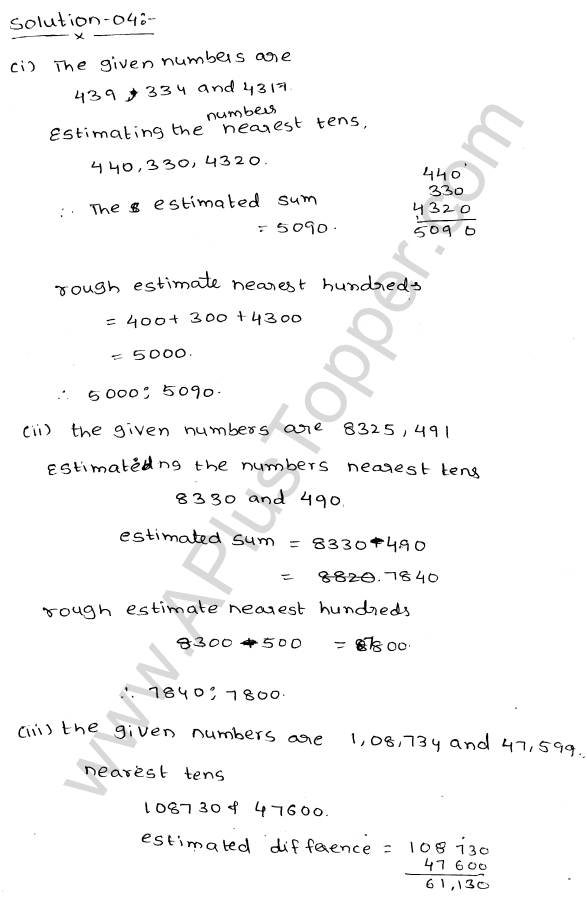 Solution-04:-
(i) The given numbers are
439, 334 and 4317.
Estimating the numbers nearest tens,
440, 330, 4320.
∴ The estimated sum
= 5090.
440
330
4320
5090
rough estimate nearest hundreds
= 400 + 300 + 4300
= 5000.
∴ 5000; 5090.
(ii) the given numbers are 8325, 491
Estimatedng the numbers nearest tens
8330 and 490.
estimated sum = 8330 - 490
= 8820. 7840
rough estimate nearest hundreds
8300 - 500 = 7800.
∴ 7840; 7800.
(iii) the given numbers are 1,08,734 and 47,599.
nearest tens
108730 & 47600.
estimated diffeence = 108730
47600
61,130
www.APlusTopper.com